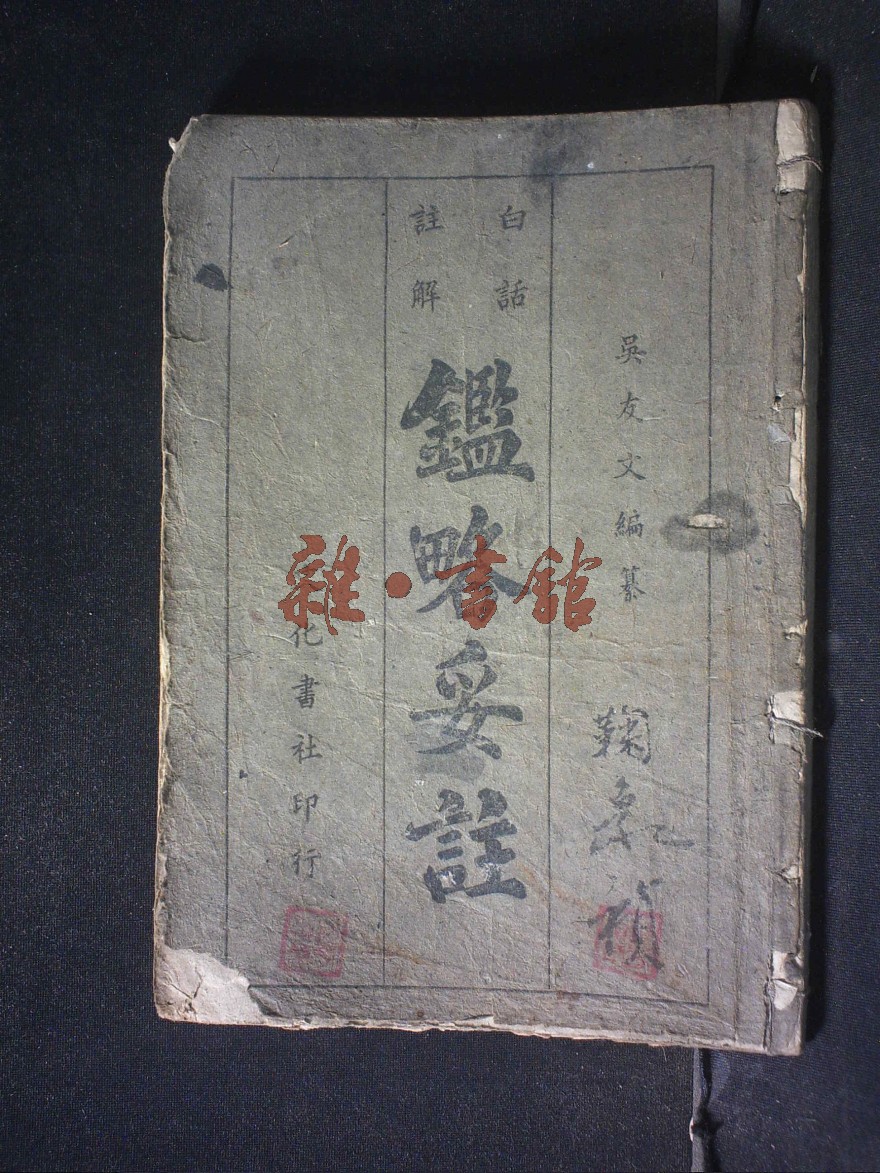 吳友文編纂
白話
註解
鑑畧妥註
化書社印行
雜·書館